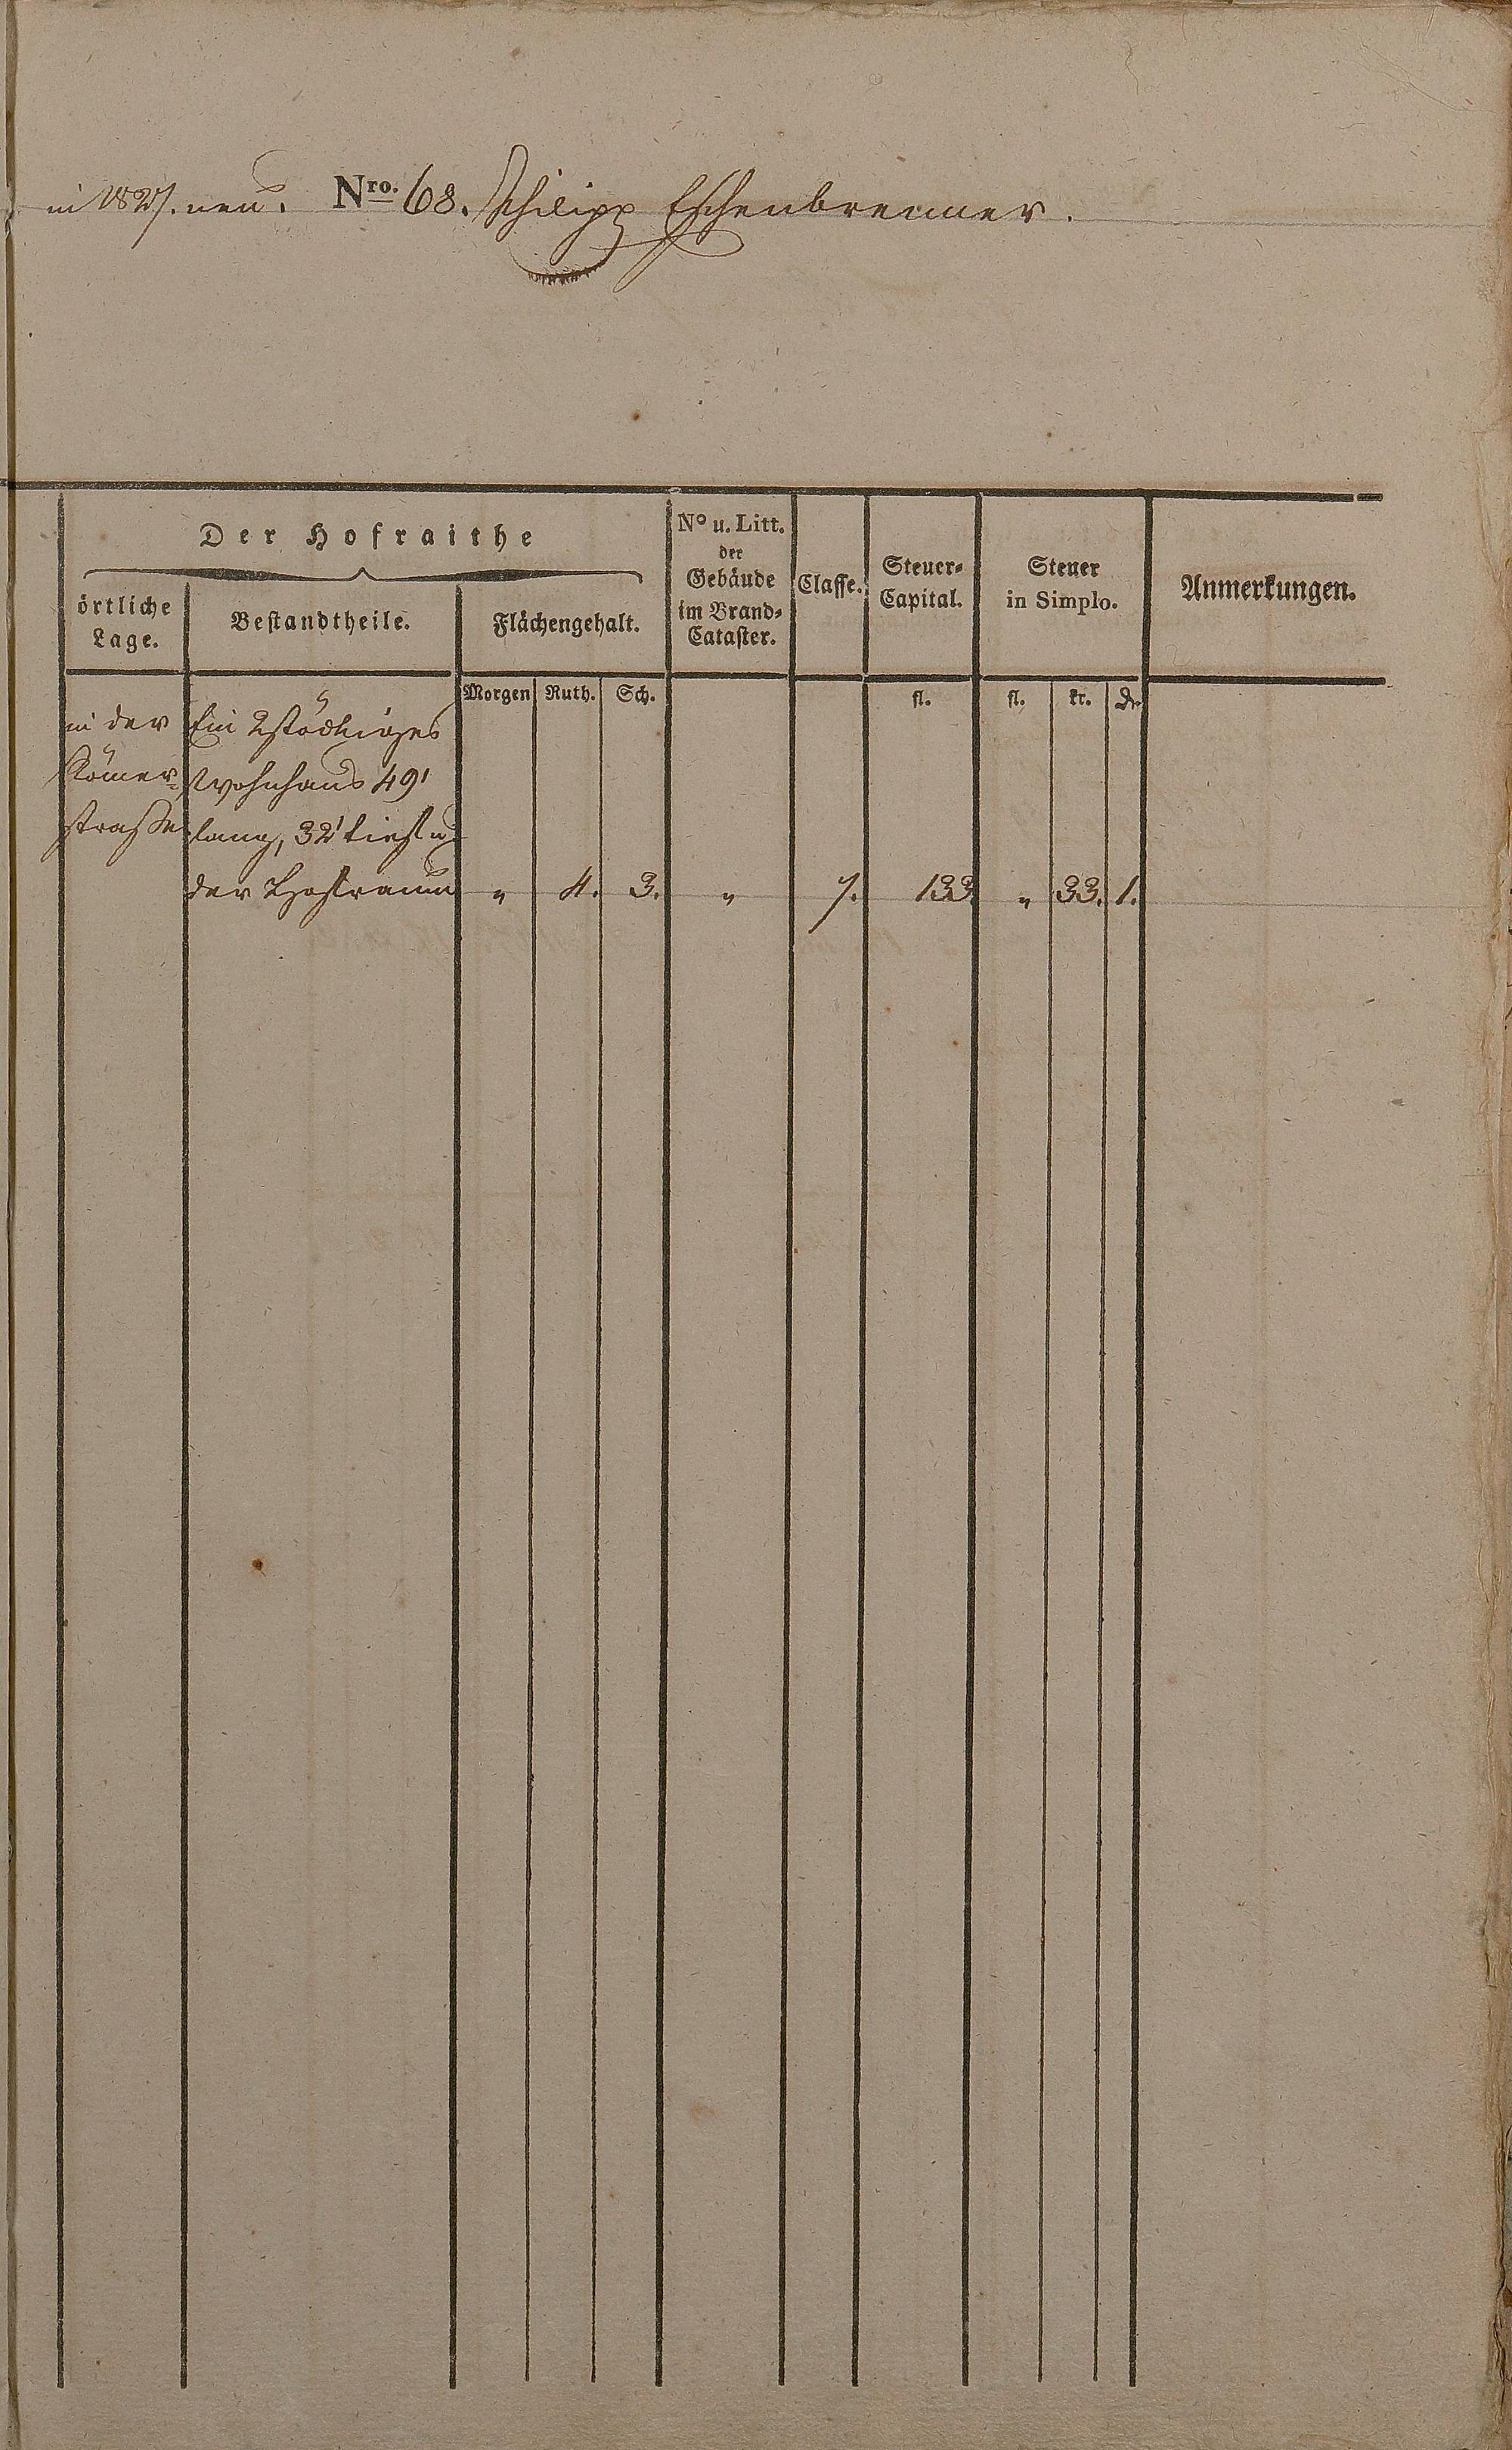 in 1827. neu. Nro. 68. Philipp Eschenbrenner.
Der Hofraithe
örtliche Lage.
Bestandtheile.
Flächengehalt.
No u. Litt. der Gebäude im Brand-Cataster.
Classe.
Steuer-Capital.
Steuer in Simplo.
Anmerkungen.
Morgen Ruth. Sch. fl. fl. kr. dr.
in der Ein 2stöckiges
Römer- Wohnhaus 49'
straße lang, 32' tief u
der Hofraum " 4. 3. " 7. 133 " 33. 1.